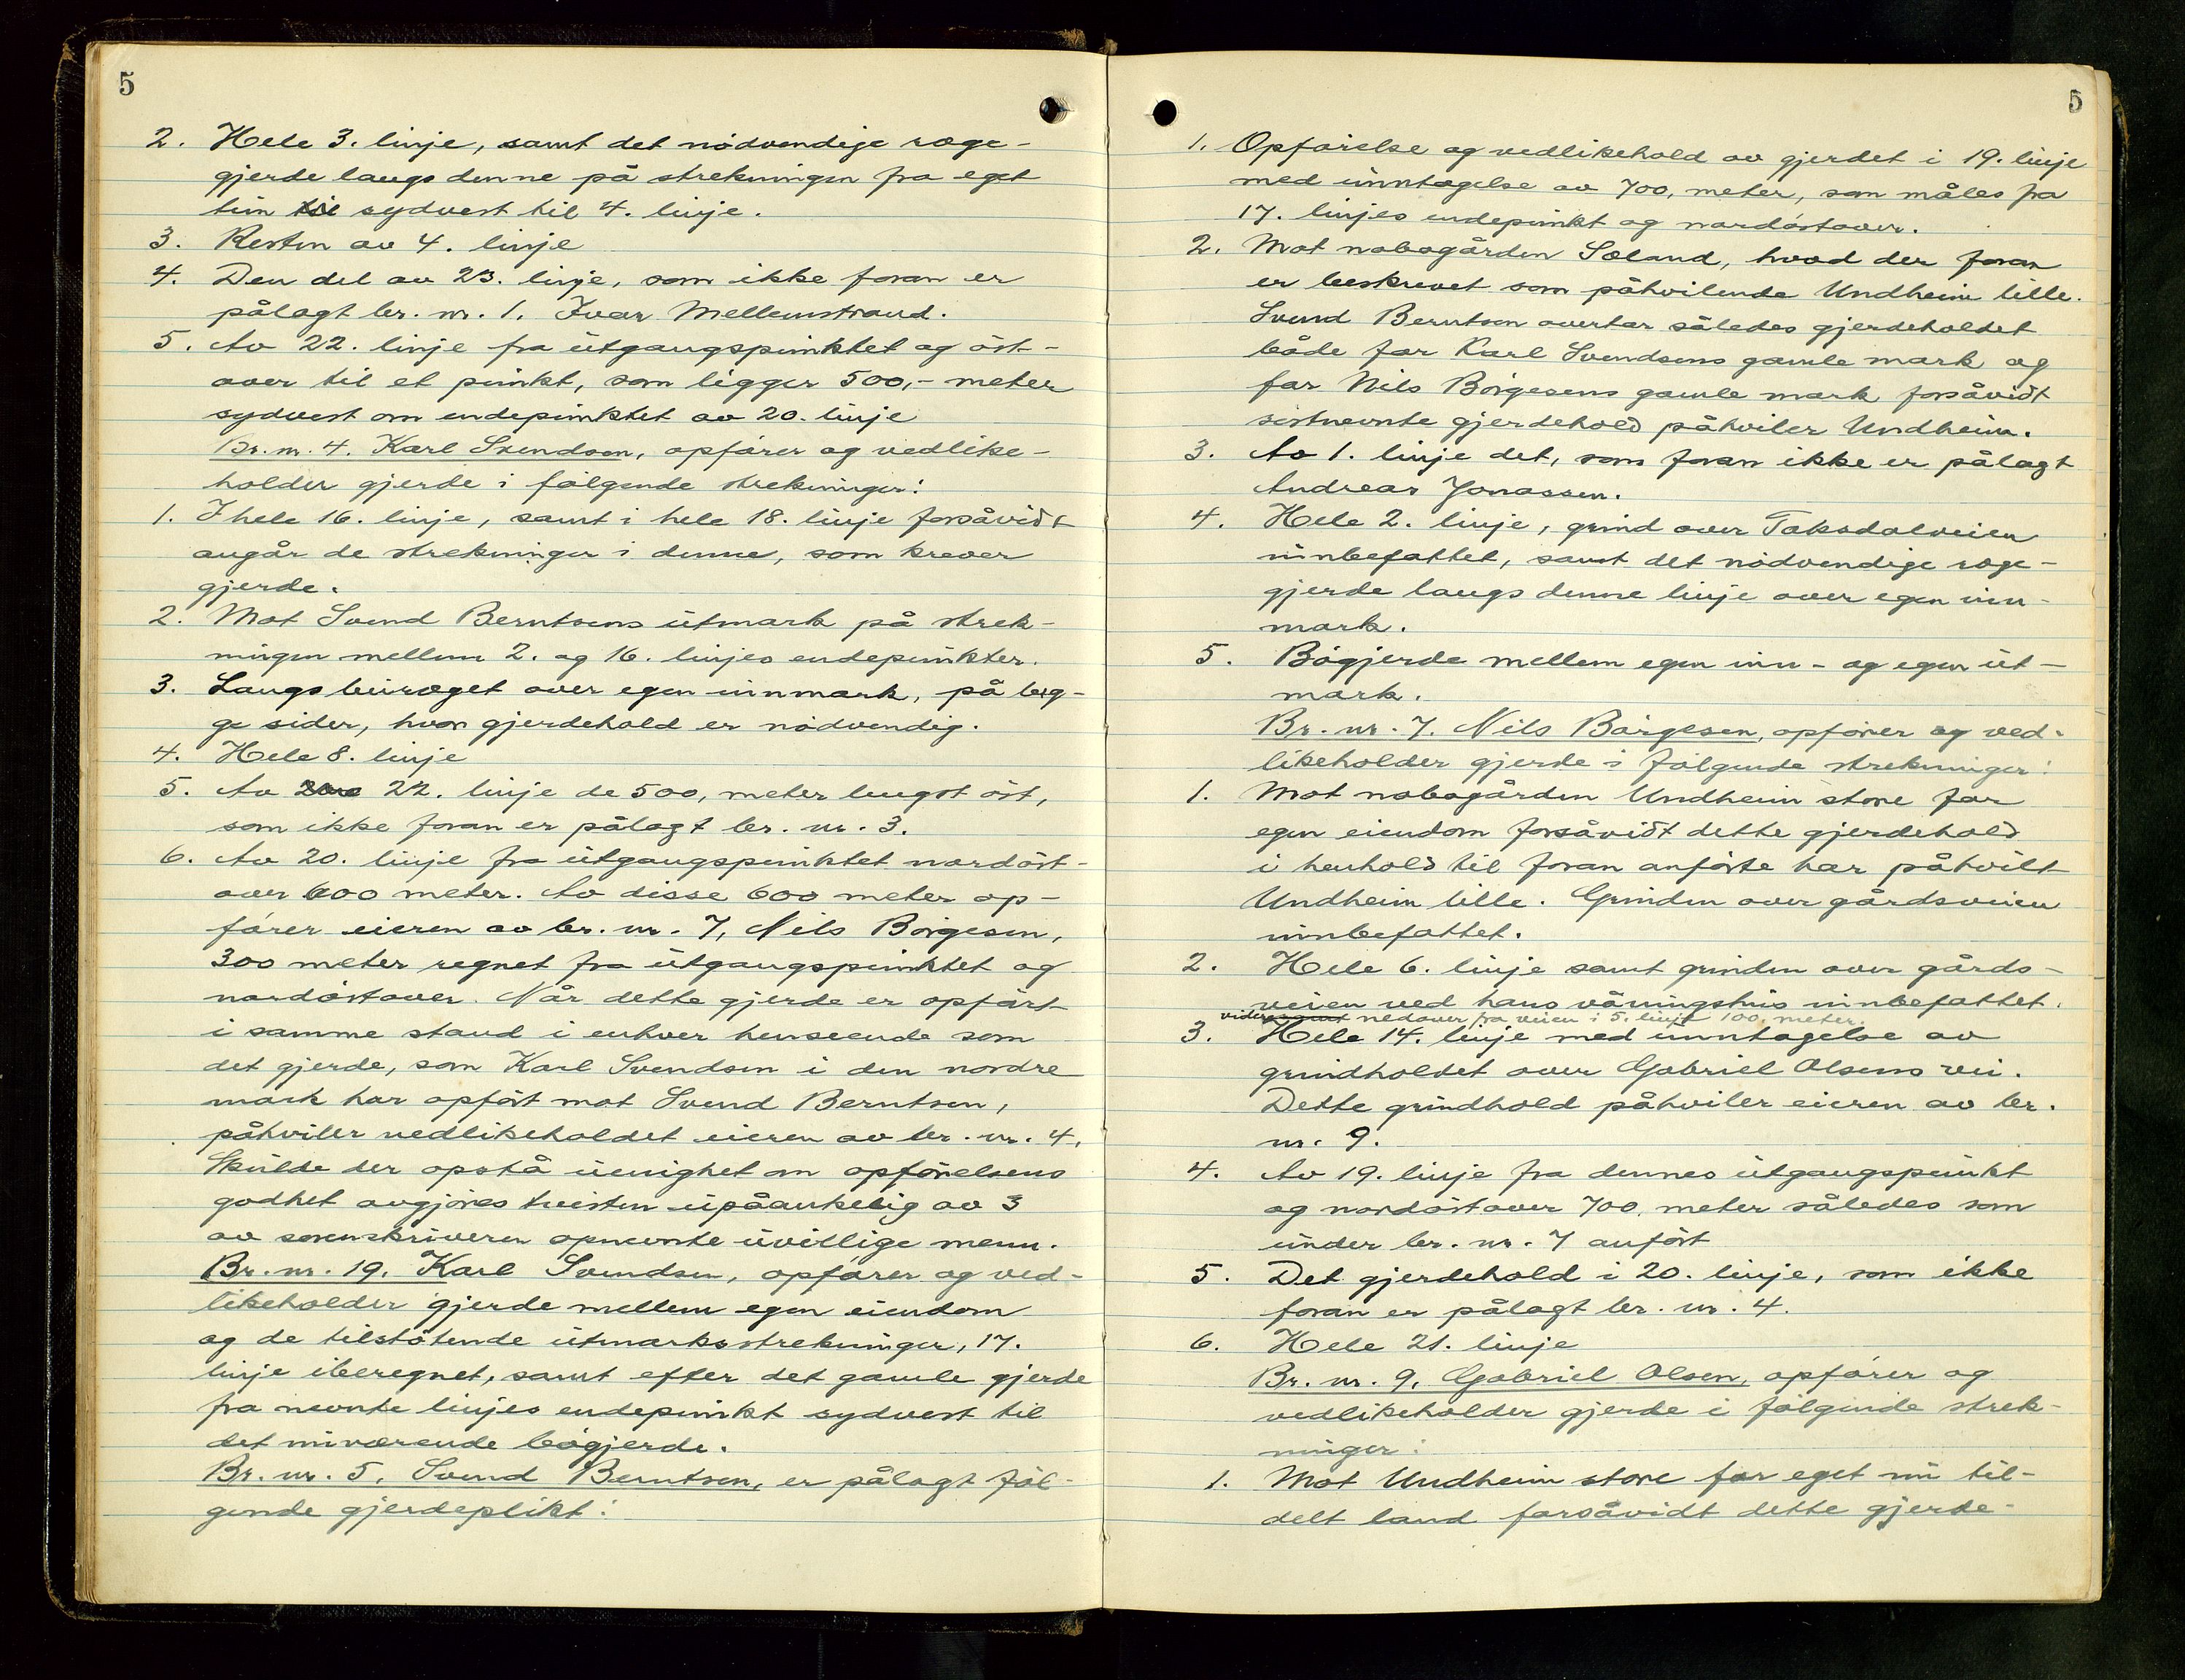 5
2. Hele 3. linje, samt det nödvendige ræge-
gjerde langs denne på strekningen fra eget
tun til sydvest til 4. linje.
3. Resten av 4. linje
4. Den del av 23. linje, som ikke foran er
pålagt br. nr. 1. Ivar Mellemstrand.
5. Av 22. linje fra utgangspunktet og öst-
over til et punkt, som ligger 500,- meter
sydvest om endepunktet av 20. linje
Br. nr. 4. Karl Svendsen, opförer og vedlike-
holder gjerde i fölgende strekninger:
1. I hele 16. linje, samt i hele 18. linje forsåvidt
angår de strekninger i denne, som krever
gjerde.
2. Mot Svend Berntsens utmark på strek-
ningen mellem 2. og 16. linjes endepunkter.
3. Langs buræget over egen innmark, på beg-
ge sider, hvor gjerdehold er nödvendig.
4. Hele 8. linje
5. Av 22. linje de 500, meter lengst öst,
som ikke foran er pålagt br. nr. 3.
6. Av 20. linje fra utgangspunktet nordöst-
over 600 meter. Av disse 600 meter op-
förer eieren av br. nr. 7, Nils Börgesen,
300 meter regnet fra utgangspunktet og
nordöstover. Når dette gjerde er opfört
i samme stand i enhver henseende som
det gjerde, som Karl Svendsen i den nordre
mark har opfört mot Svend Berntsen,
påhviler vedlikeholdet eieren av br. nr. 4.
Skulde der opstå uenighet om opförelsens
godhet avgjöres tvisten upåankelig av 3
av sorenskriveren opnevnte uvillige menn.
Br. nr. 19. Karl Svendsen, opförer og ved-
likeholder gjerde mellem egen eiendom
og de tilstötende utmarksstrekninger, 17.
linje iberegnet, samt efter det gamle gjerde
fra nevnte linjes endepunkt sydvest til
det nuværende bögjerde.
Br. nr. 5. Svend Berntsen, er pålagt föl-
gende gjerdeplikt:
5
1. Opförelse og vedlikehold av gjerdet i 19. linje
med unntagelse av 700, meter, som måles fra
17. linjes endepunkt og nordöstover.
2. Mot nabogården Söland, hvad der foran
er beskrevet som påhvilende Undheim lille.
Svend Berntsen overtar således gjerdeholdet
både for Karl Svendsens gamle mark og
for Nils Börgesens gamle mark forsåvidt
sistnevnte gjerdehold påhviler Undheim.
3. Av 1. linje det, som foran ikke er pålagt
Andreas Jonassen.
4. Hele 2. linje, grind over Taksdalveien
innbefattet, samt det nödvendige ræge-
gjerde langs denne linje over egen inn-
mark.
5. Bögjerde mellem egen inn- og egen ut-
mark.
Br. nr. 7. Nils Börgesen, opförer og ved-
likeholder gjerde i fölgende strekninger:
1. Mot nabogården Undheim store for
egen eiendom forsåvidt dette gjerdehold
i henhold til foran anförte har påhvilt
Undheim lille. Grinden over gårdsveien
innbefattet.
2. Hele 6. linje samt grinden over gårds-
veien ved hans våningshus innbefattet.
videre samt nedover fra veien i 5. linje 100. meter.
3. Hele 14. linje med unntagelse av
grindholdet over Gabriel Olsens vei.
Dette grindhold påhviler eieren av br.
nr. 9.
4. Av 19. linje fra dennes utgangspunkt
og nordöstover 700, meter således som
under br. nr. 7 anfört
5. Det gjerdehold i 20. linje, som ikke
foran er pålagt br. nr. 4.
6. Hele 21. linje
Br. nr. 9. Gabriel Olsen, opförer og
vedlikeholder gjerde i fölgende strek-
ninger:
1. Mot Undheim store for eget nu til-
delt land forsåvidt dette gjerde-